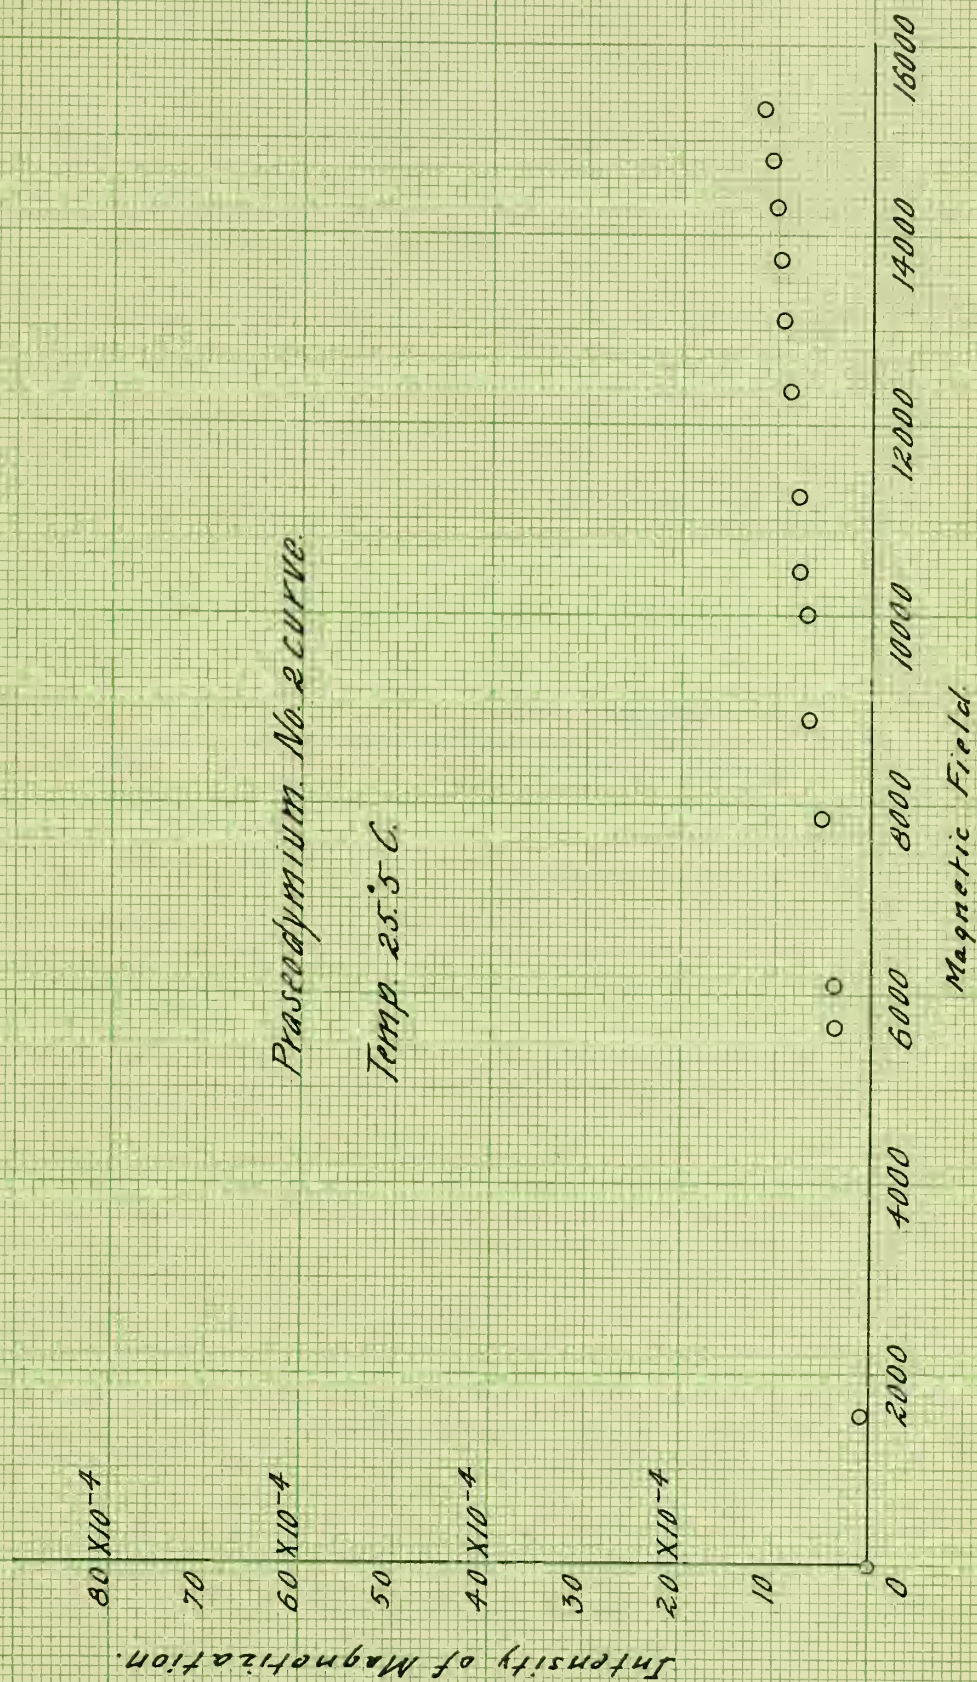 Praseodymium. No. 2 curve.
Temp. 25.°5 C.
Intensity of Magnetization.
80 X10-4
70
60 X10-4
50
40 X10-4
30
20 X10-4
10
0
2000
4000
6000
8000
10000
12000
14000
16000
Magnetic Field.